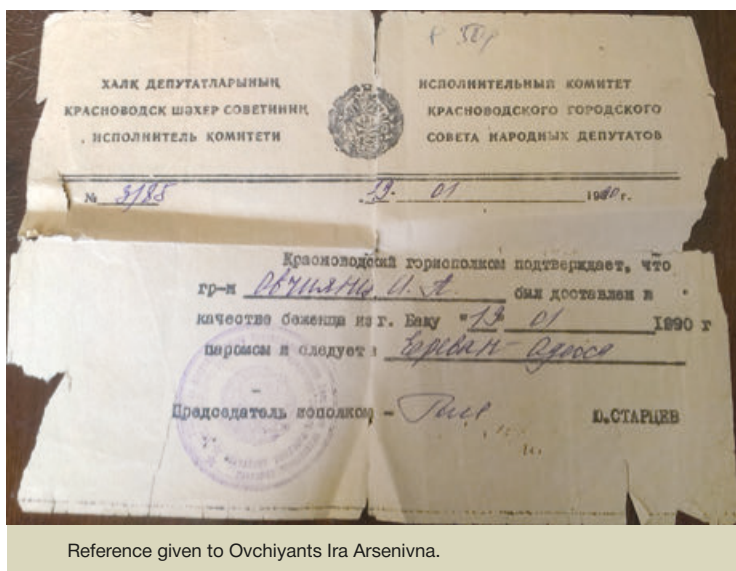 ХАЛҚ ДЕПУТАТЛАРЫНЫҢ
КРАСНОВОДСК ШӘХЕР СОВЕТИНИҢ
ИСПОЛНИТЕЛЬ КОМИТЕТИ
ИСПОЛНИТЕЛЬНЫЙ КОМИТЕТ
КРАСНОВОДСКОГО ГОРОДСКОГО
СОВЕТА НАРОДНЫХ ДЕПУТАТОВ
№ 3/85 19. 01 1990 г.
Красноводский горисполком подтверждает, что
гр-н Овчиянц И. А. был доставлен в
качестве беженца из г. Баку "19" 01 1990 г
паромом и следует в Ереван - Одесса
Председатель исполком - Ю.СТАРЦЕВ
Reference given to Ovchiyants Ira Arsenivna.